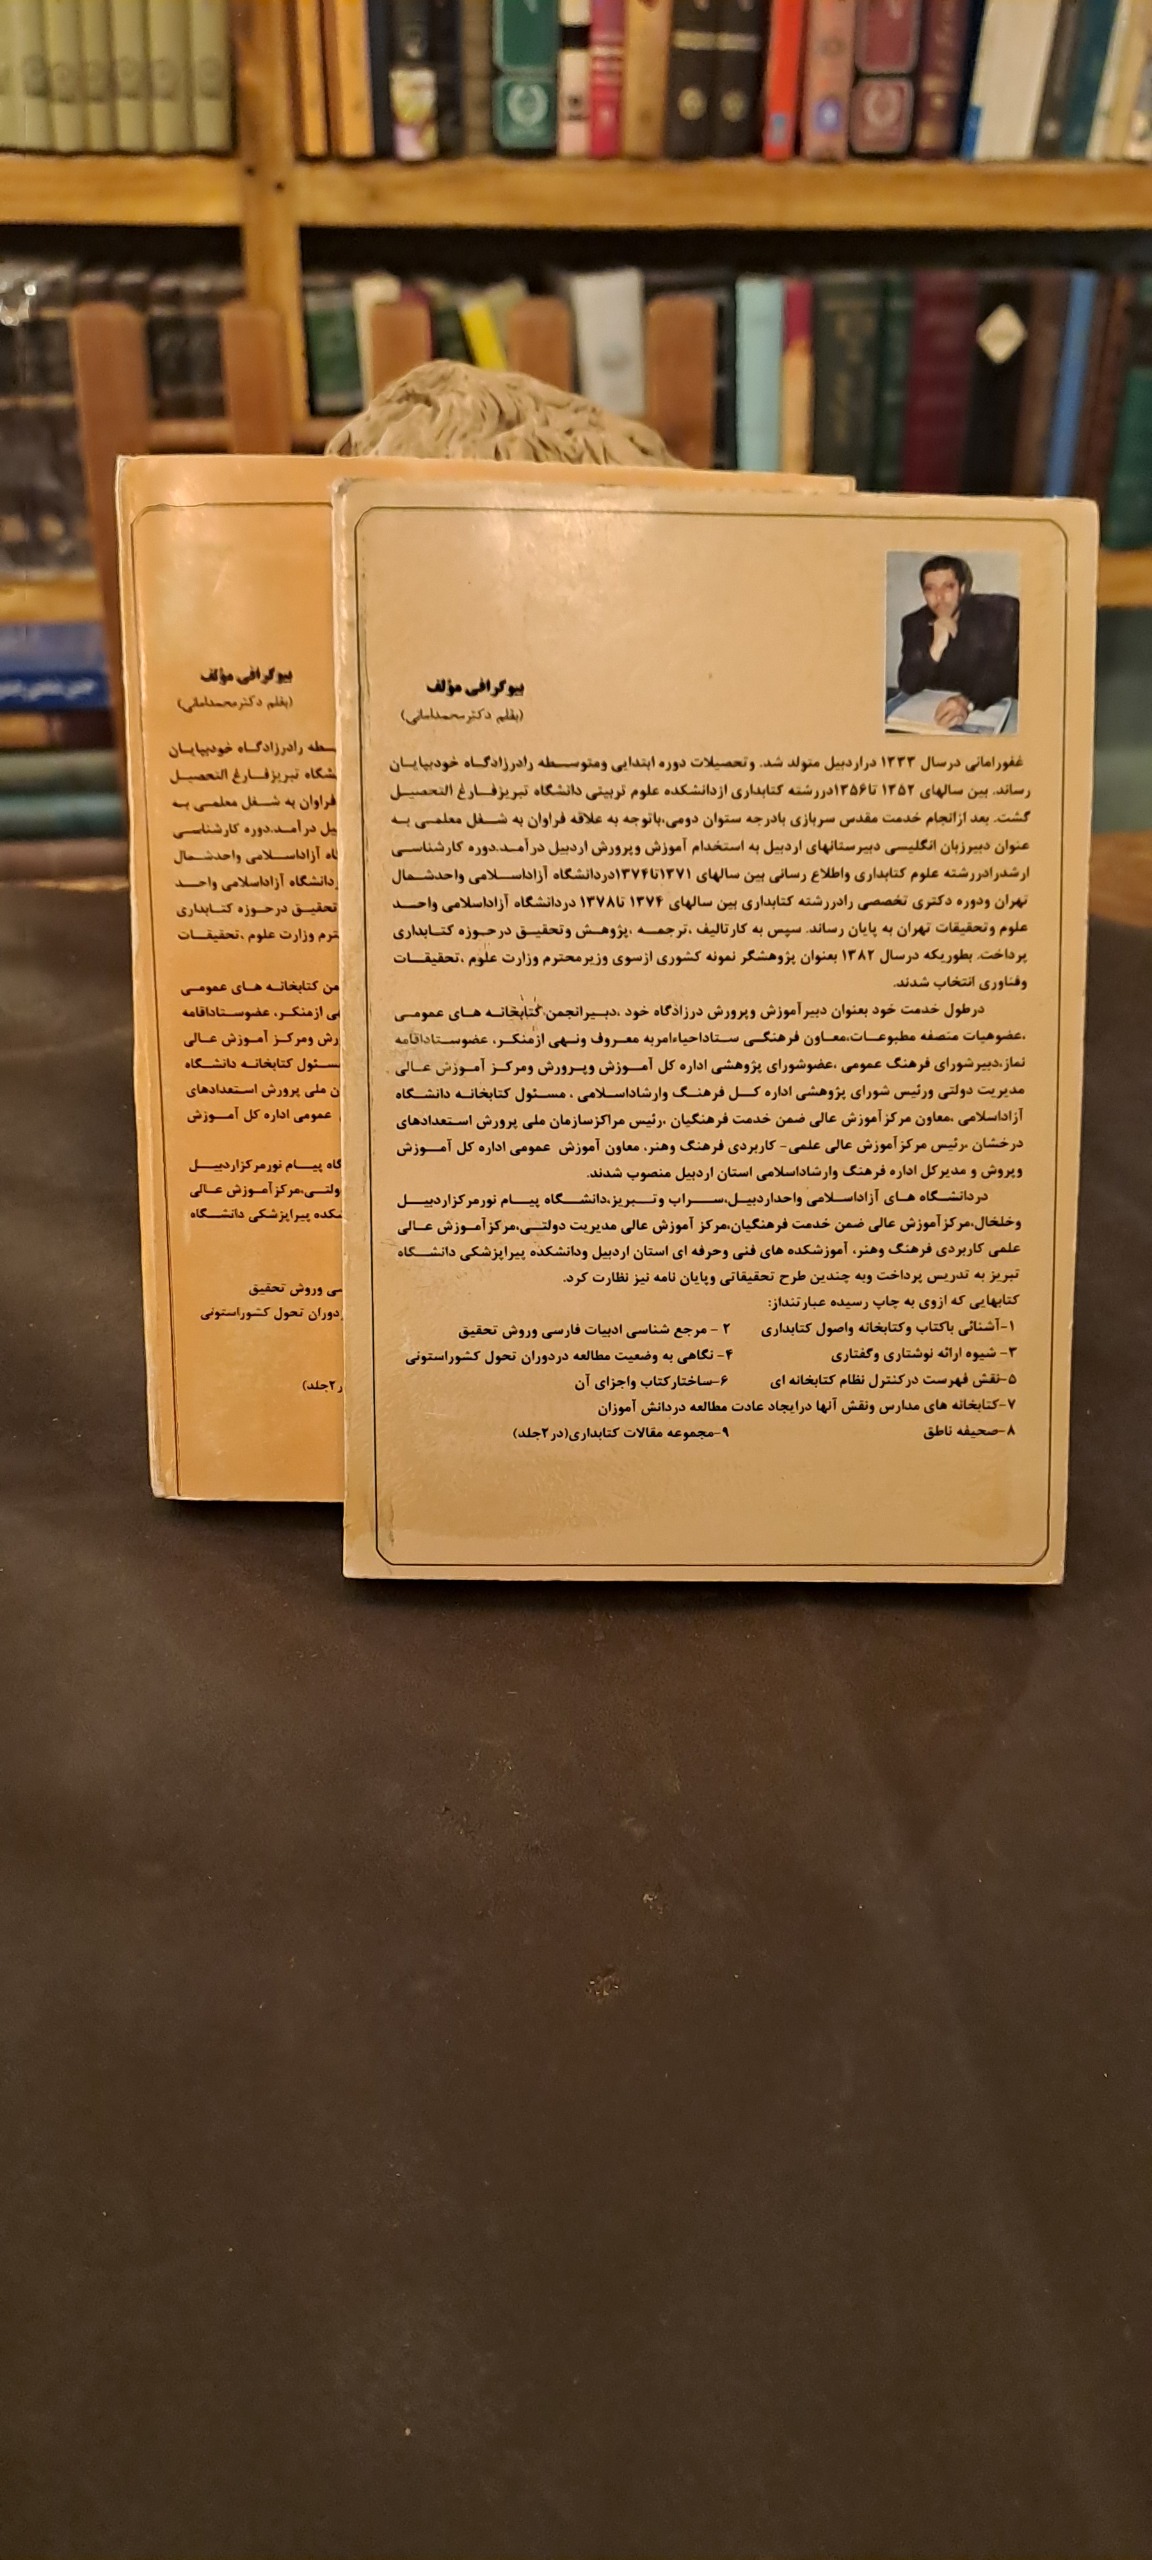 بیوگرافی مؤلف
(بقلم دکتر محمدامانی)
غفورامانی درسال ۱۳۳۳ دراردبیل متولد شد. وتحصیلات دوره ابتدایی ومتوسطه رادرزادگاه خودبپایان
رساند. بین سالهای ۱۳۵۲ تا۱۳۵۶دررشته کتابداری ازدانشکده علوم تربیتی دانشگاه تبریزفارغ التحصیل
گشت. بعد ازانجام خدمت مقدس سربازی بادرجه ستوان دومی،باتوجه به علاقه فراوان به شغل معلمی به
عنوان دبیرزبان انگلیسی دبیرستانهای اردبیل به استخدام آموزش وپرورش اردبیل درآمد.دوره کارشناسی
ارشدرادررشته علوم کتابداری واطلاع رسانی بین سالهای ۱۳۷۱تا۱۳۷۴دردانشگاه آزاداسلامی واحدشمال
تهران ودوره دکتری تخصصی رادررشته کتابداری بین سالهای ۱۳۷۴ تا۱۳۷۸ دردانشگاه آزاداسلامی واحد
علوم وتحقیقات تهران به پایان رساند. سپس به کارتالیف ،ترجمه ،پژوهش وتحقیق درحوزه کتابداری
پرداخت. بطوریکه درسال ۱۳۸۲ بعنوان پژوهشگر نمونه کشوری ازسوی وزیرمحترم وزارت علوم ،تحقیقات
وفناوری انتخاب شدند.
درطول خدمت خود بعنوان دبیرآموزش وپرورش درزادگاه خود ،دبیرانجمن کتابخانه های عمومی
،عضوهیات منصفه مطبوعات،معاون فرهنگی ستاداحیاءامربه معروف ونهی ازمنکر، عضوستاداقامه
نماز،دبیرشورای فرهنگ عمومی ،عضوشورای پژوهشی اداره کل آموزش وپرورش ومرکز آموزش عالی
مدیریت دولتی ورئیس شورای پژوهشی اداره کل فرهنگ وارشاداسلامی ، مسئول کتابخانه دانشگاه
آزاداسلامی ،معاون مرکزآموزش عالی ضمن خدمت فرهنگیان ،رئیس مراکزسازمان ملی پرورش استعدادهای
درخشان ،رئیس مرکزآموزش عالی علمی- کاربردی فرهنگ وهنر، معاون آموزش عمومی اداره کل آموزش
وپروش و مدیرکل اداره فرهنگ وارشاداسلامی استان اردبیل منصوب شدند.
دردانشگاه های آزاداسلامی واحداردبیل،سراب وتبریز،دانشگاه پیام نورمرکزاردبیل
وخلخال،مرکزآموزش عالی ضمن خدمت فرهنگیان،مرکز آموزش عالی مدیریت دولتی،مرکزآموزش عالی
علمی کاربردی فرهنگ وهنر، آموزشکده های فنی وحرفه ای استان اردبیل ودانشکده پیراپزشکی دانشگاه
تبریز به تدریس پرداخت وبه چندین طرح تحقیقاتی وپایان نامه نیز نظارت کرد.
کتابهایی که ازوی به چاپ رسیده عبارتنداز:
۱-آشنائی باکتاب وکتابخانه واصول کتابداری ۲ - مرجع شناسی ادبیات فارسی وروش تحقیق
۳- شیوه ارائه نوشتاری وگفتاری ۴- نگاهی به وضعیت مطالعه دردوران تحول کشوراستونی
۵-نقش فهرست درکنترل نظام کتابخانه ای ۶-ساختارکتاب واجزای آن
۷-کتابخانه های مدارس ونقش آنها درایجاد عادت مطالعه دردانش آموزان
۸-صحیفه ناطق ۹-مجموعه مقالات کتابداری(در۲جلد)
بیوگرافی مؤلف
(بقلم دکتر محمدامانی)
رادرزادگاه خودبپایان
تبریزفارغ التحصیل
فراوان به شغل معلمی به
درآمد.دوره کارشناسی
آزاداسلامی واحدشمال
دردانشگاه آزاداسلامی واحد
تحقیق درحوزه کتابداری
وزارت علوم ،تحقیقات
کتابخانه های عمومی
ازمنکر، عضوستاداقامه
ومرکز آموزش عالی
مسئول کتابخانه دانشگاه
ملی پرورش استعدادهای
عمومی اداره کل آموزش
پیام نورمرکزاردبیل
مرکزآموزش عالی
پیراپزشکی دانشگاه
وروش تحقیق
دردوران تحول کشوراستونی
در۲جلد)